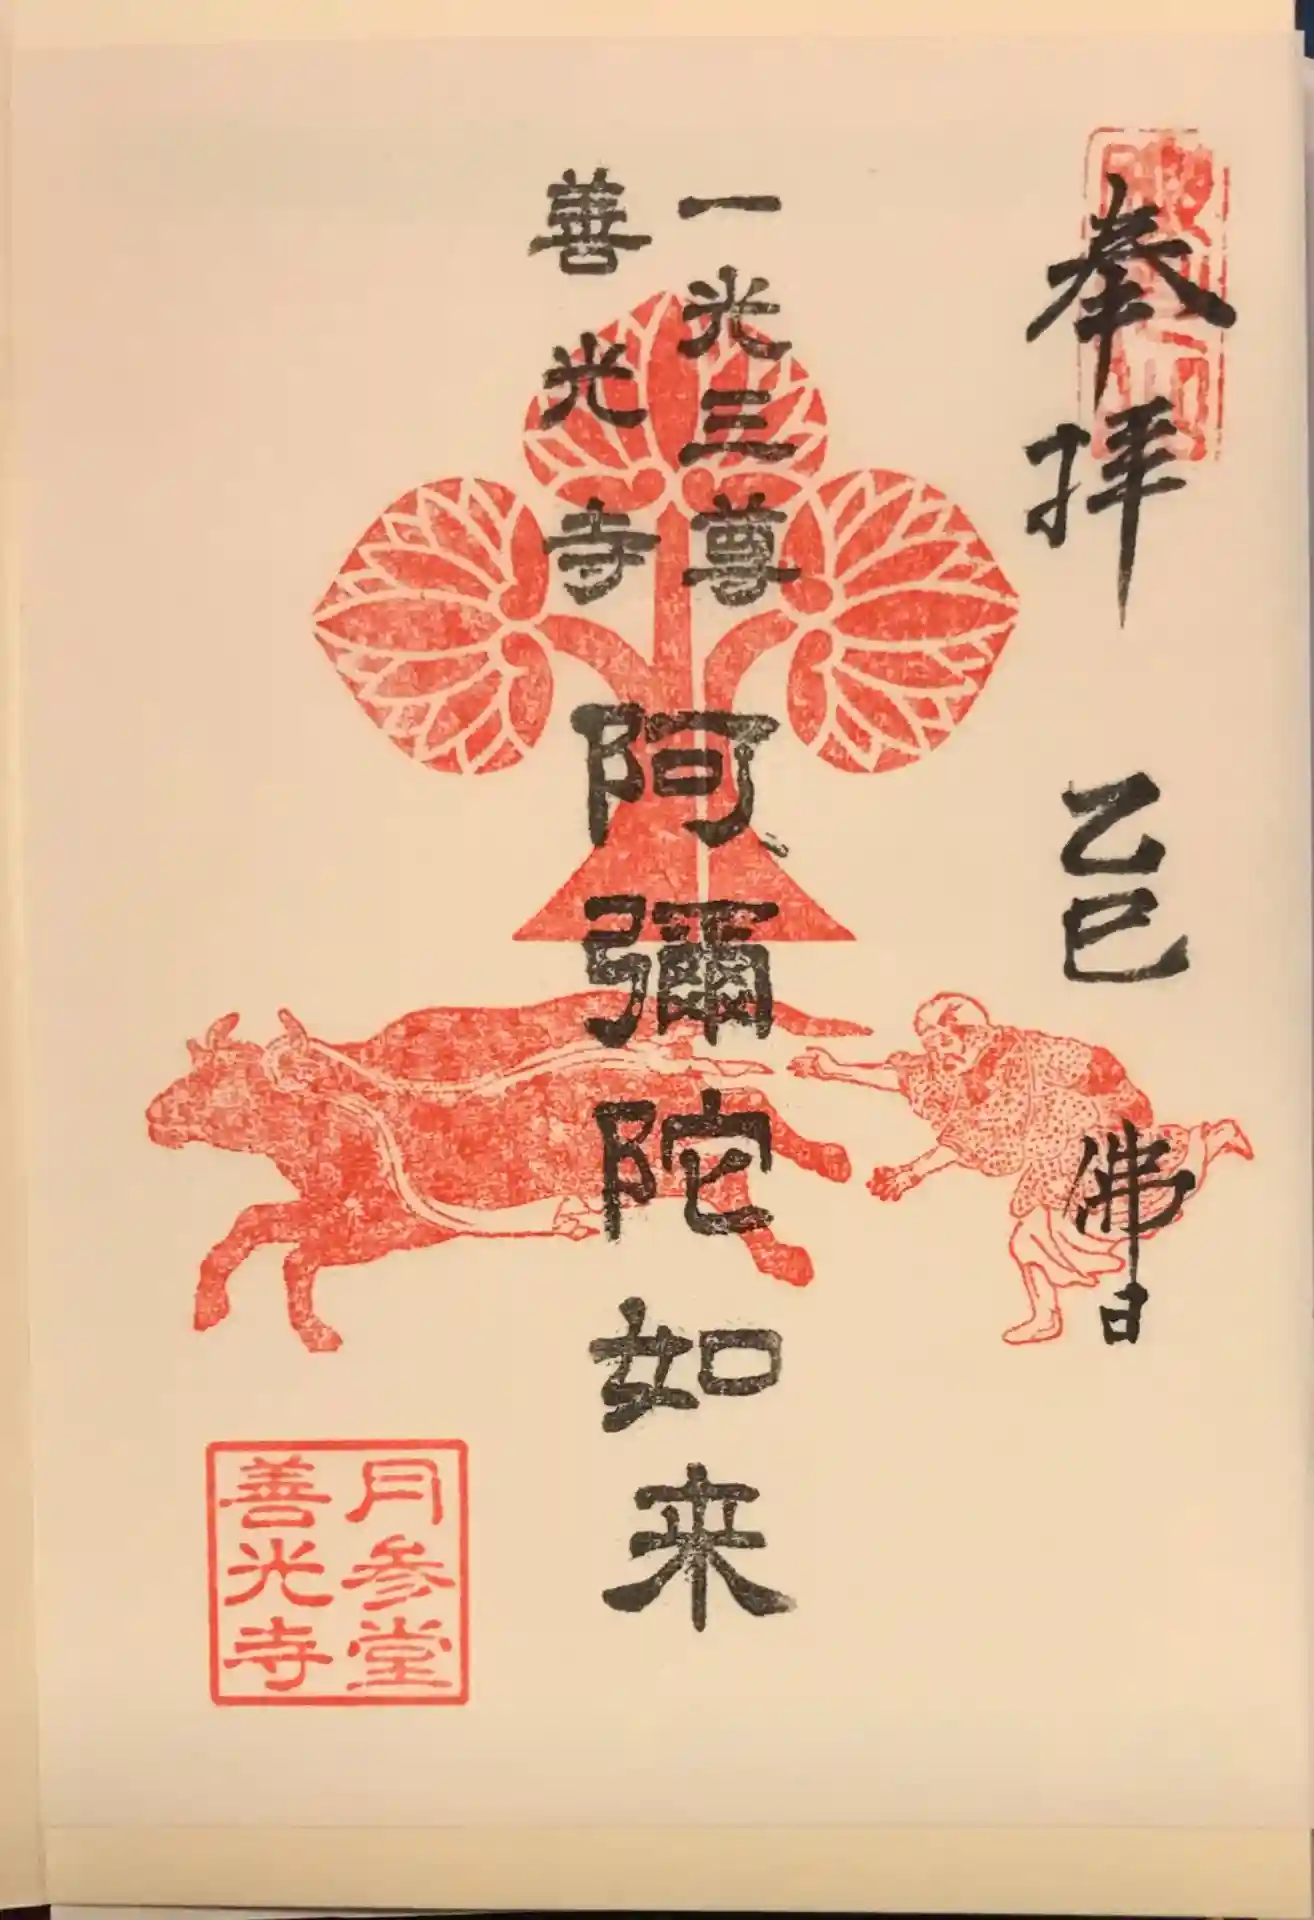 奉拝 乙巳 佛日
一光三尊
善光寺
阿彌陀如来
月参堂
善光寺